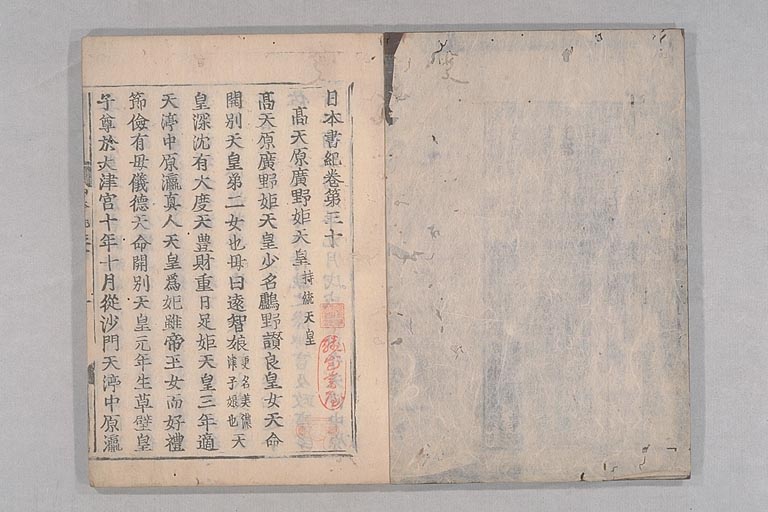 日本書紀卷第三十
高天原廣野姬天皇 持統天皇
高天原廣野姬天皇少名鸕野讚良皇女天命
開別天皇第二女也母曰遠智娘更名美濃津子娘也天
皇深沈有大度天豊財重日足姬天皇三年適
天渟中原瀛真人天皇爲妃雖帝王女而好禮
節儉有母儀德天命開別天皇元年生草壁皇
子尊於大津宮十年十月從沙門天渟中原瀛